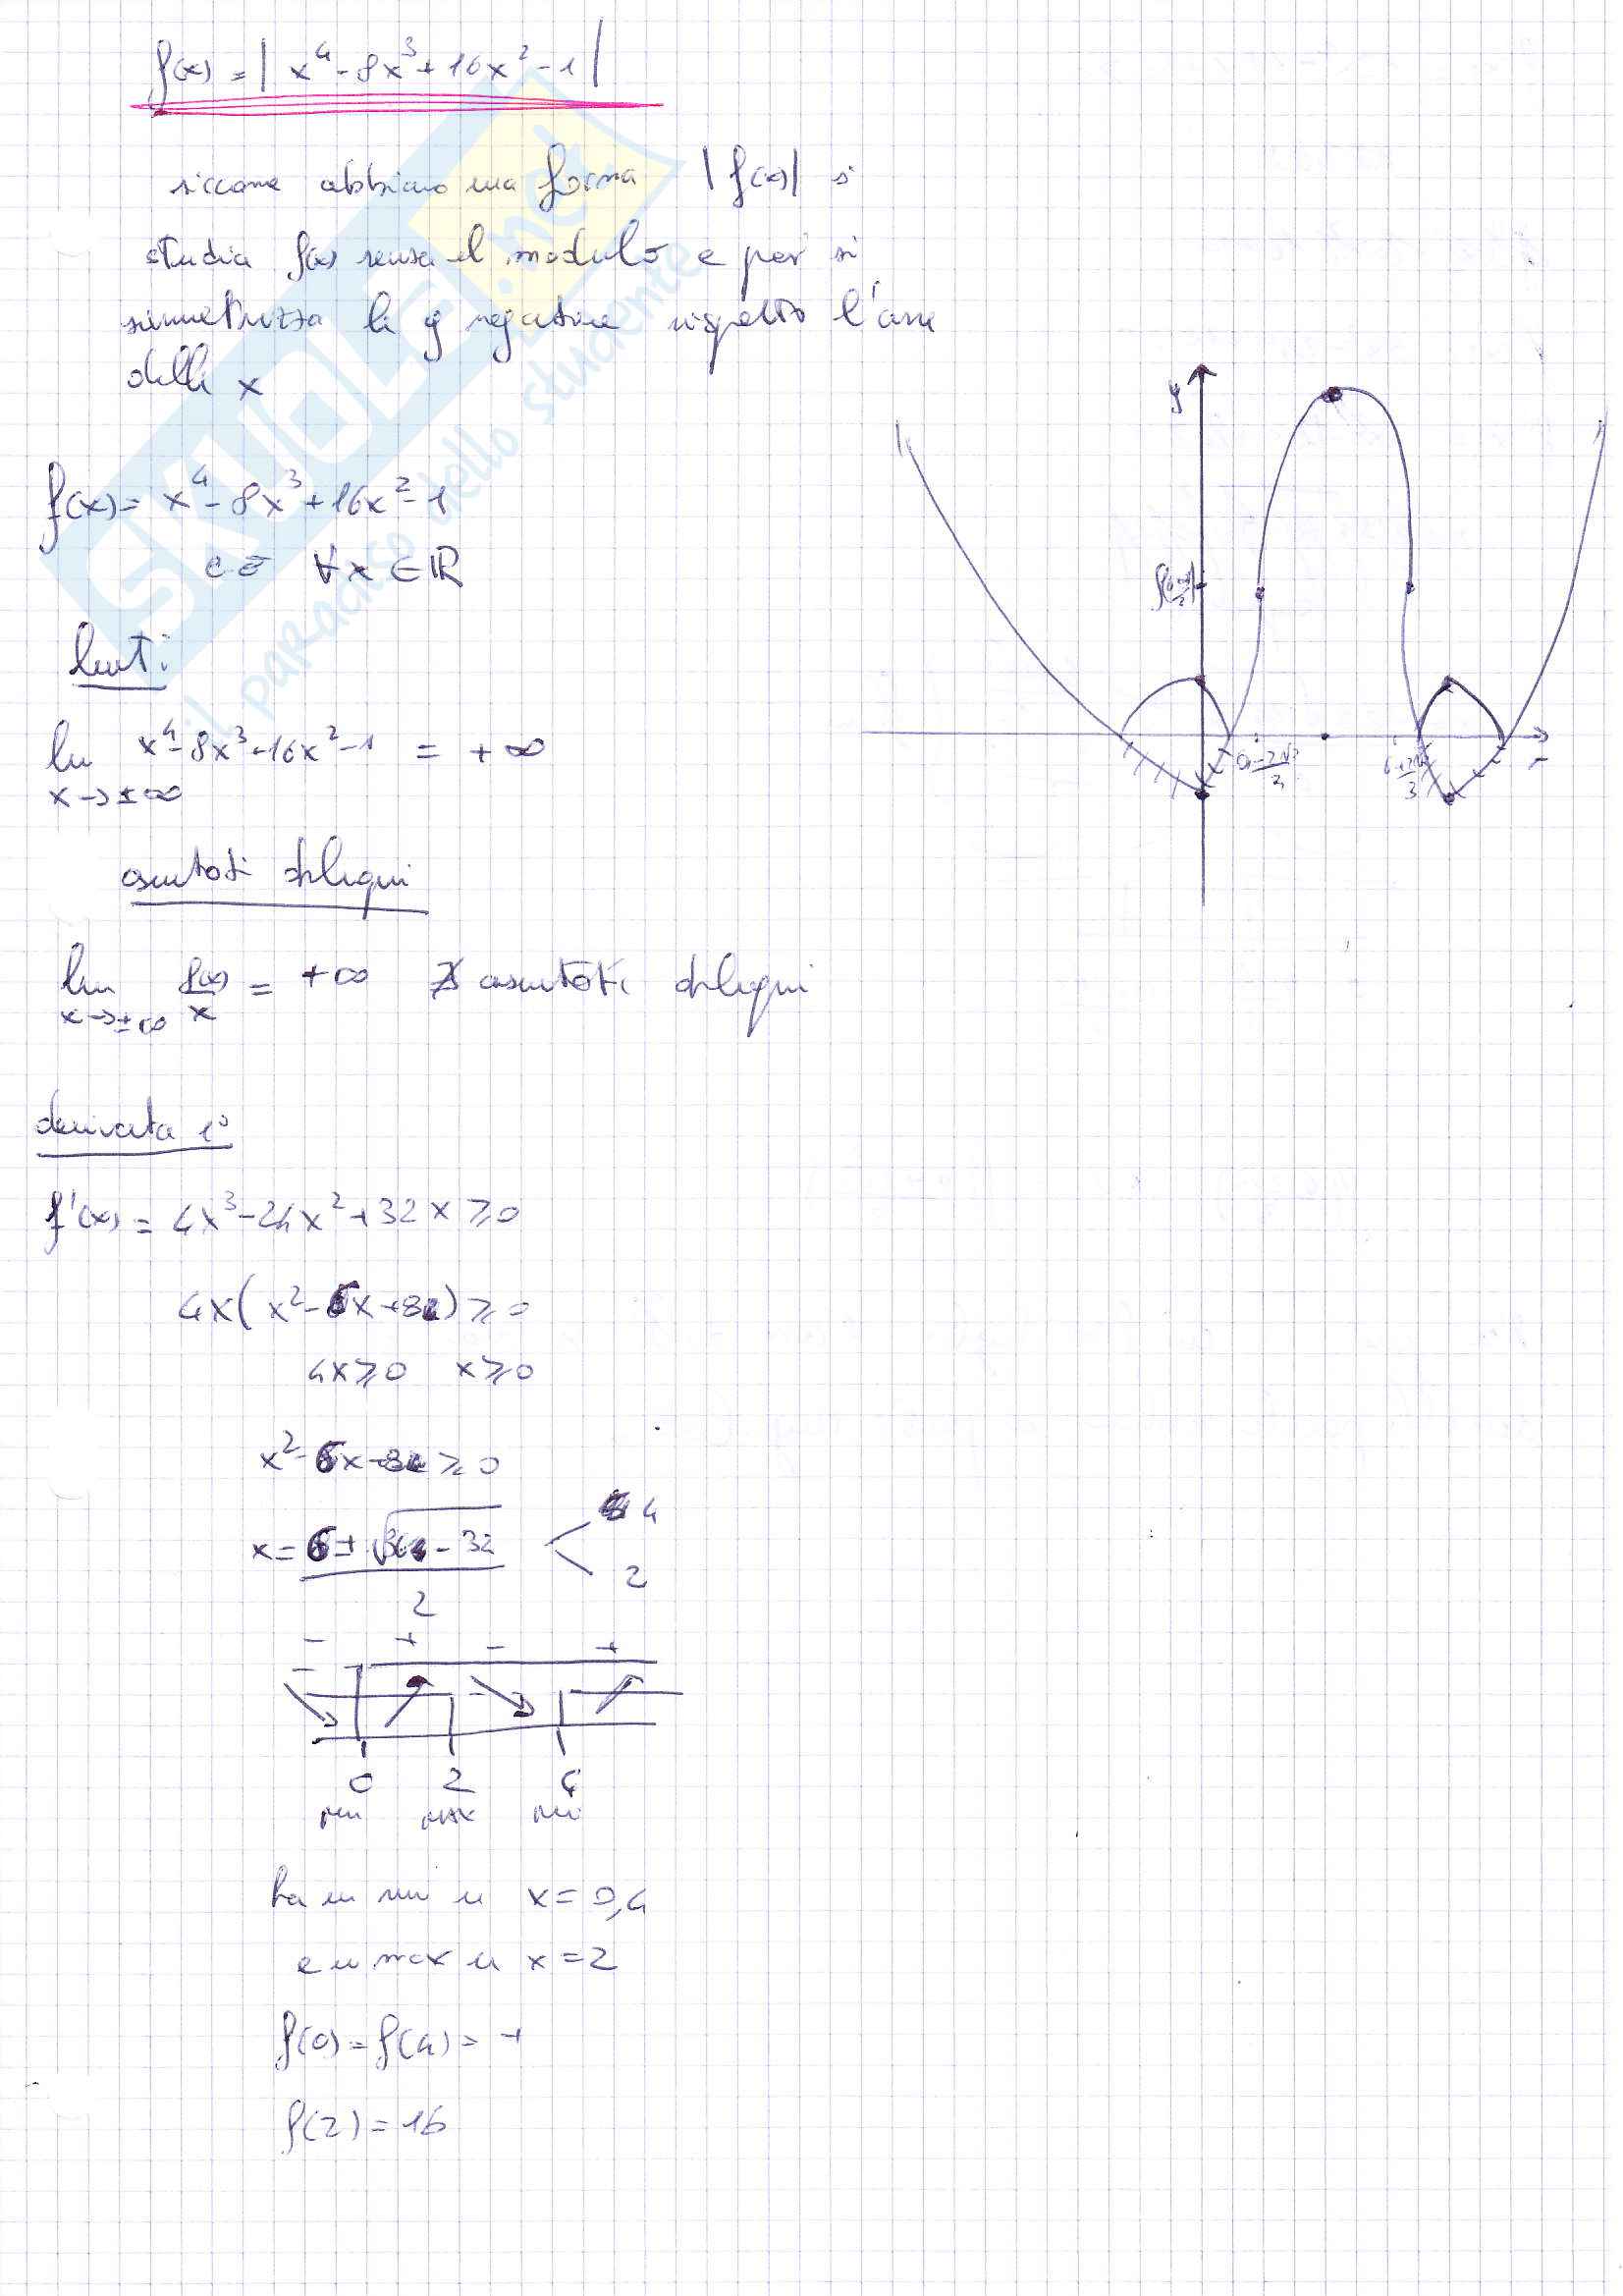 f(x) = | x⁴ - 8x³ + 16x² - 1 |
siccome abbiamo una forma |f(x)| si
studia f(x) senza il modulo e poi si
simmetrizza le y negative rispetto l'asse
delle x
f(x) = x⁴ - 8x³ + 16x² - 1
c.e. ∀x ∈ ℝ
limiti
lim x→±∞ x⁴ - 8x³ + 16x² - 1 = +∞
asintoti obliqui
lim x→±∞ f(x)/x = +∞ ∄ asintoti obliqui
derivata 1°
f'(x) = 4x³ - 24x² + 32x ≥ 0
4x(x² - 6x + 8) ≥ 0
4x ≥ 0 x ≥ 0
x² - 6x + 8 ≥ 0
x = 6 ± √36 - 32 / 2 4 2
- + - +
- -
0 2 4
min max min
ha un min in x = 0,4
e un max in x = 2
f(0) = f(4) = -1
f(2) = 15
y
6+2√3/3
x
SKUOLA.net
il paradiso dello studente